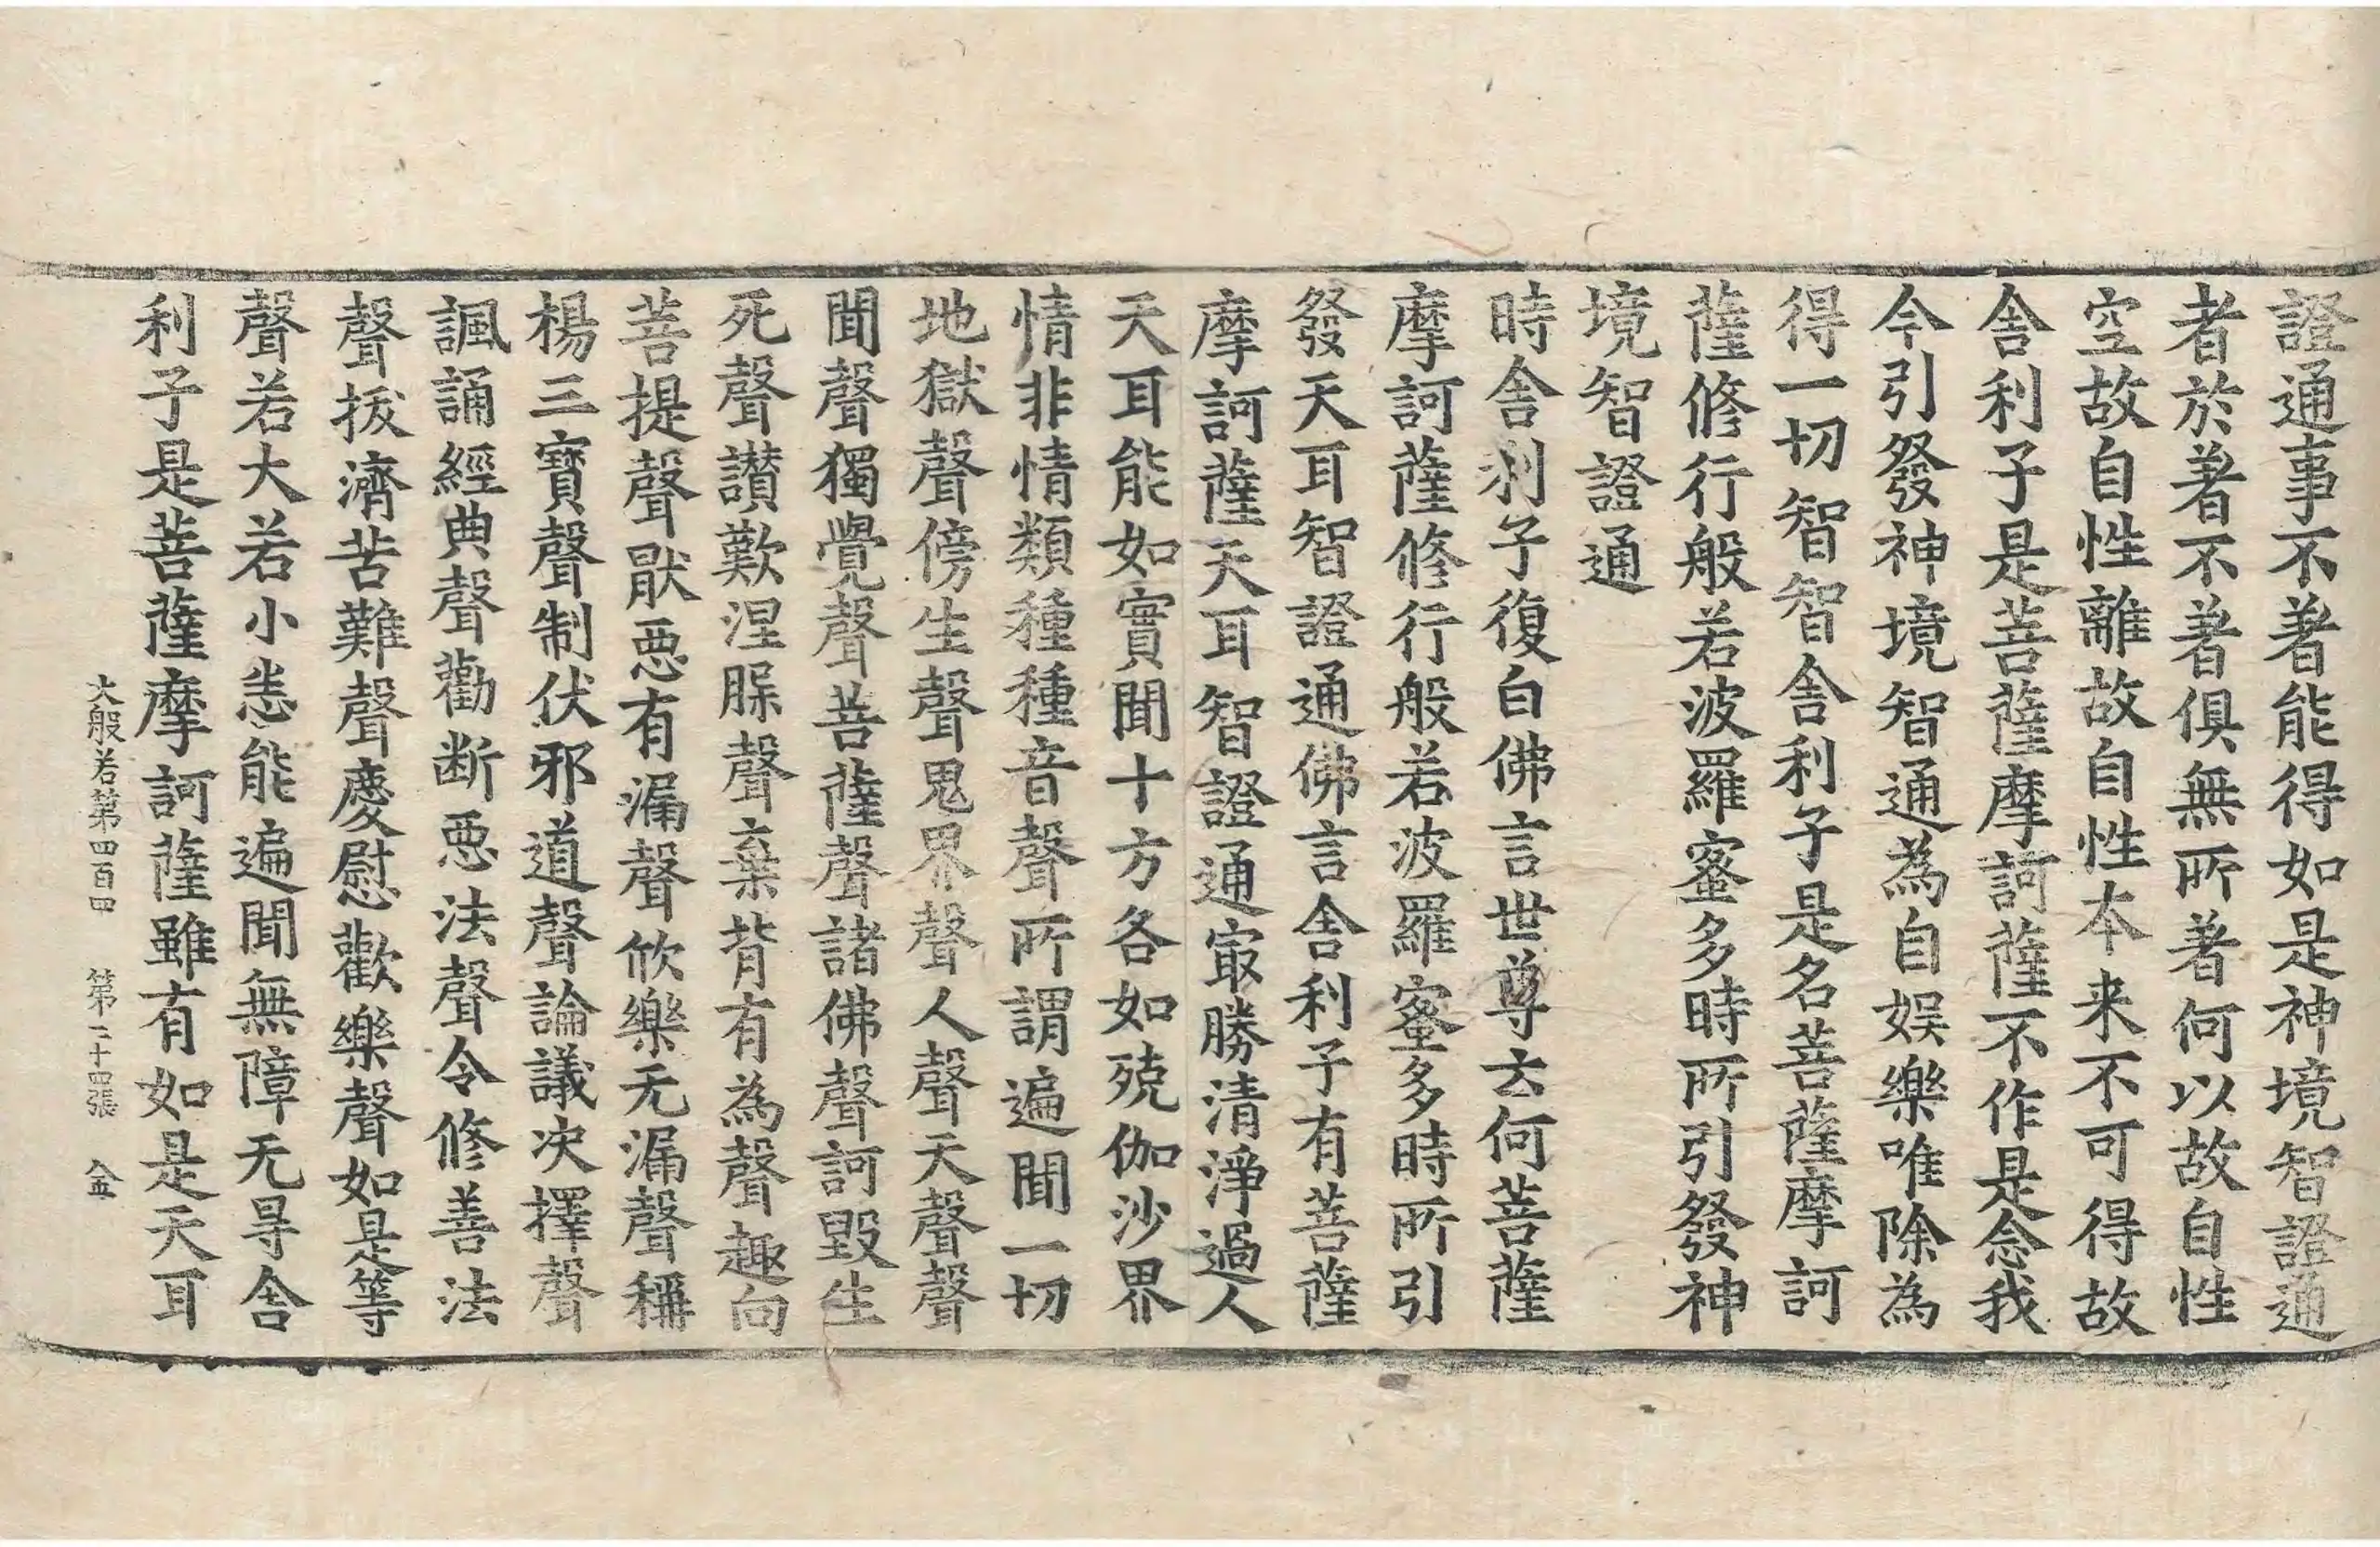 證通事不著能得如是神境智證通
者於著不著俱無所著何以故自性
空故自性離故自性本来不可得故
舎利子是菩薩摩訶薩不作是念我
今引發神境智通為自娱樂唯除為
得一切智智舎利子是名菩薩摩訶
薩修行般若波羅蜜多時所引發神
境智證通
時舎利子復白佛言世尊云何菩薩
摩訶薩修行般若波羅蜜多時所引
發天耳智證通佛言舎利子有菩薩
摩訶薩天耳智證通㝡勝清淨過人
天耳能如實聞十方各如殑伽沙界
情非情類種種音聲所謂遍聞一切
地獄聲傍生聲鬼界聲人聲天聲聲
聞聲獨覺聲菩薩聲諸佛聲訶毀生
死聲讃歎涅槃聲棄背有為聲趣向
菩提聲猒惡有漏聲欣樂无漏聲稱
楊三寶聲制伏邪道聲論議决擇聲
諷誦經典聲勸断惡法聲令修善法
聲拔濟苦難聲慶慰歡樂聲如是等
聲若大若小悉能遍聞無障无㝵舎
利子是菩薩摩訶薩雖有如是天耳
大般若第四百四 第二十四張 金